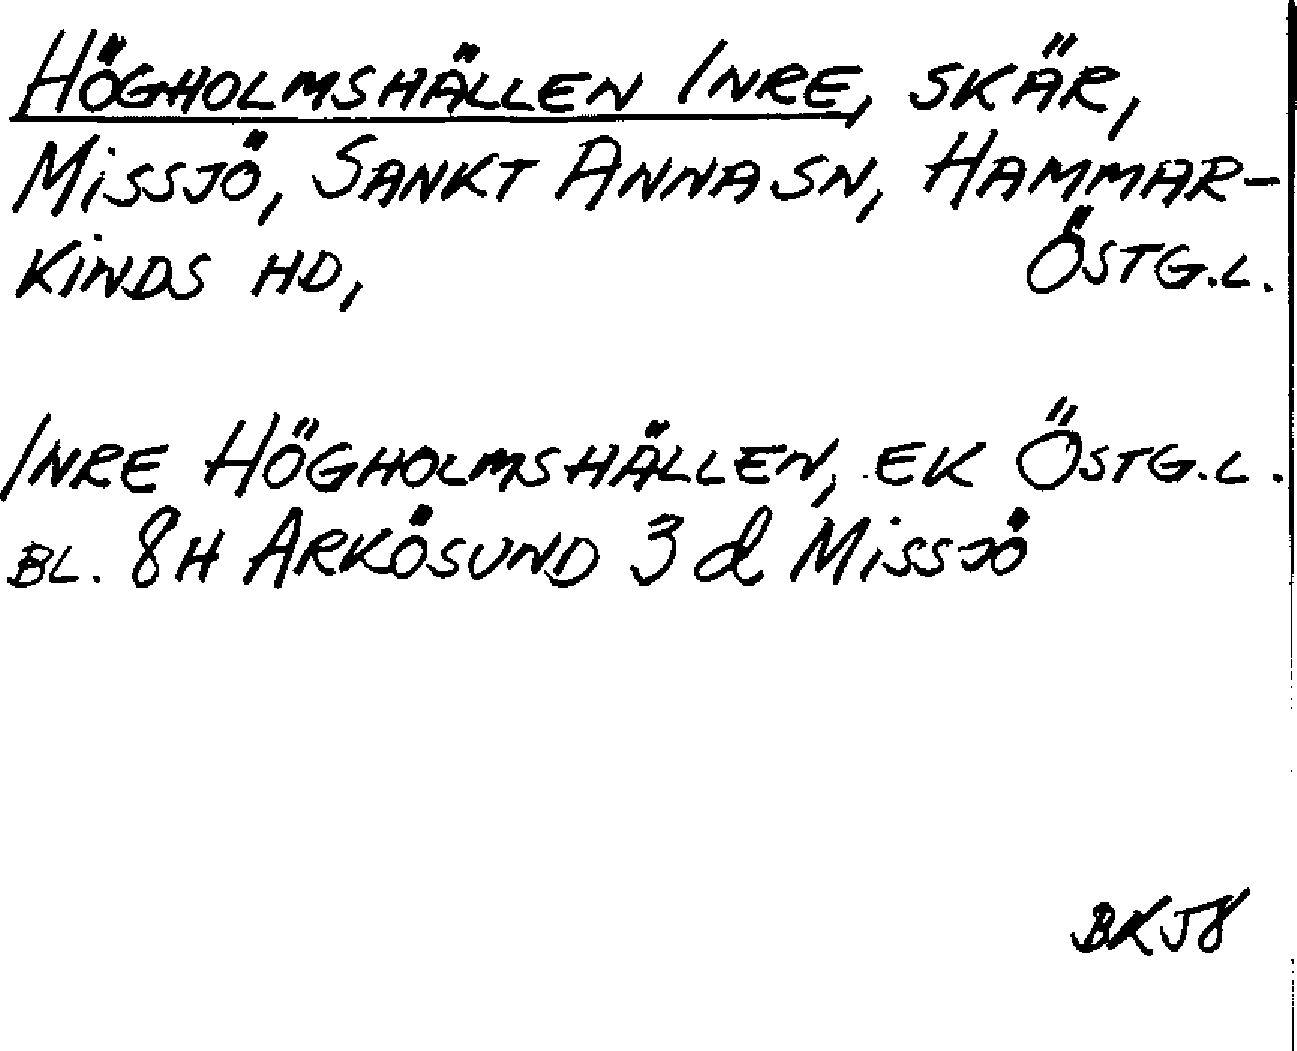 HÖGHOLMSHÄLLEN INRE, SKÄR,
MISSJÖ, SANKT ANNA SN, HAMMAR-
KINDS HD, ÖSTG.L.
INRE HÖGHOLMSHÄLLEN, EK ÖSTG.L.
BL. 8H ARKÖSUND 3 d MISSJÖ